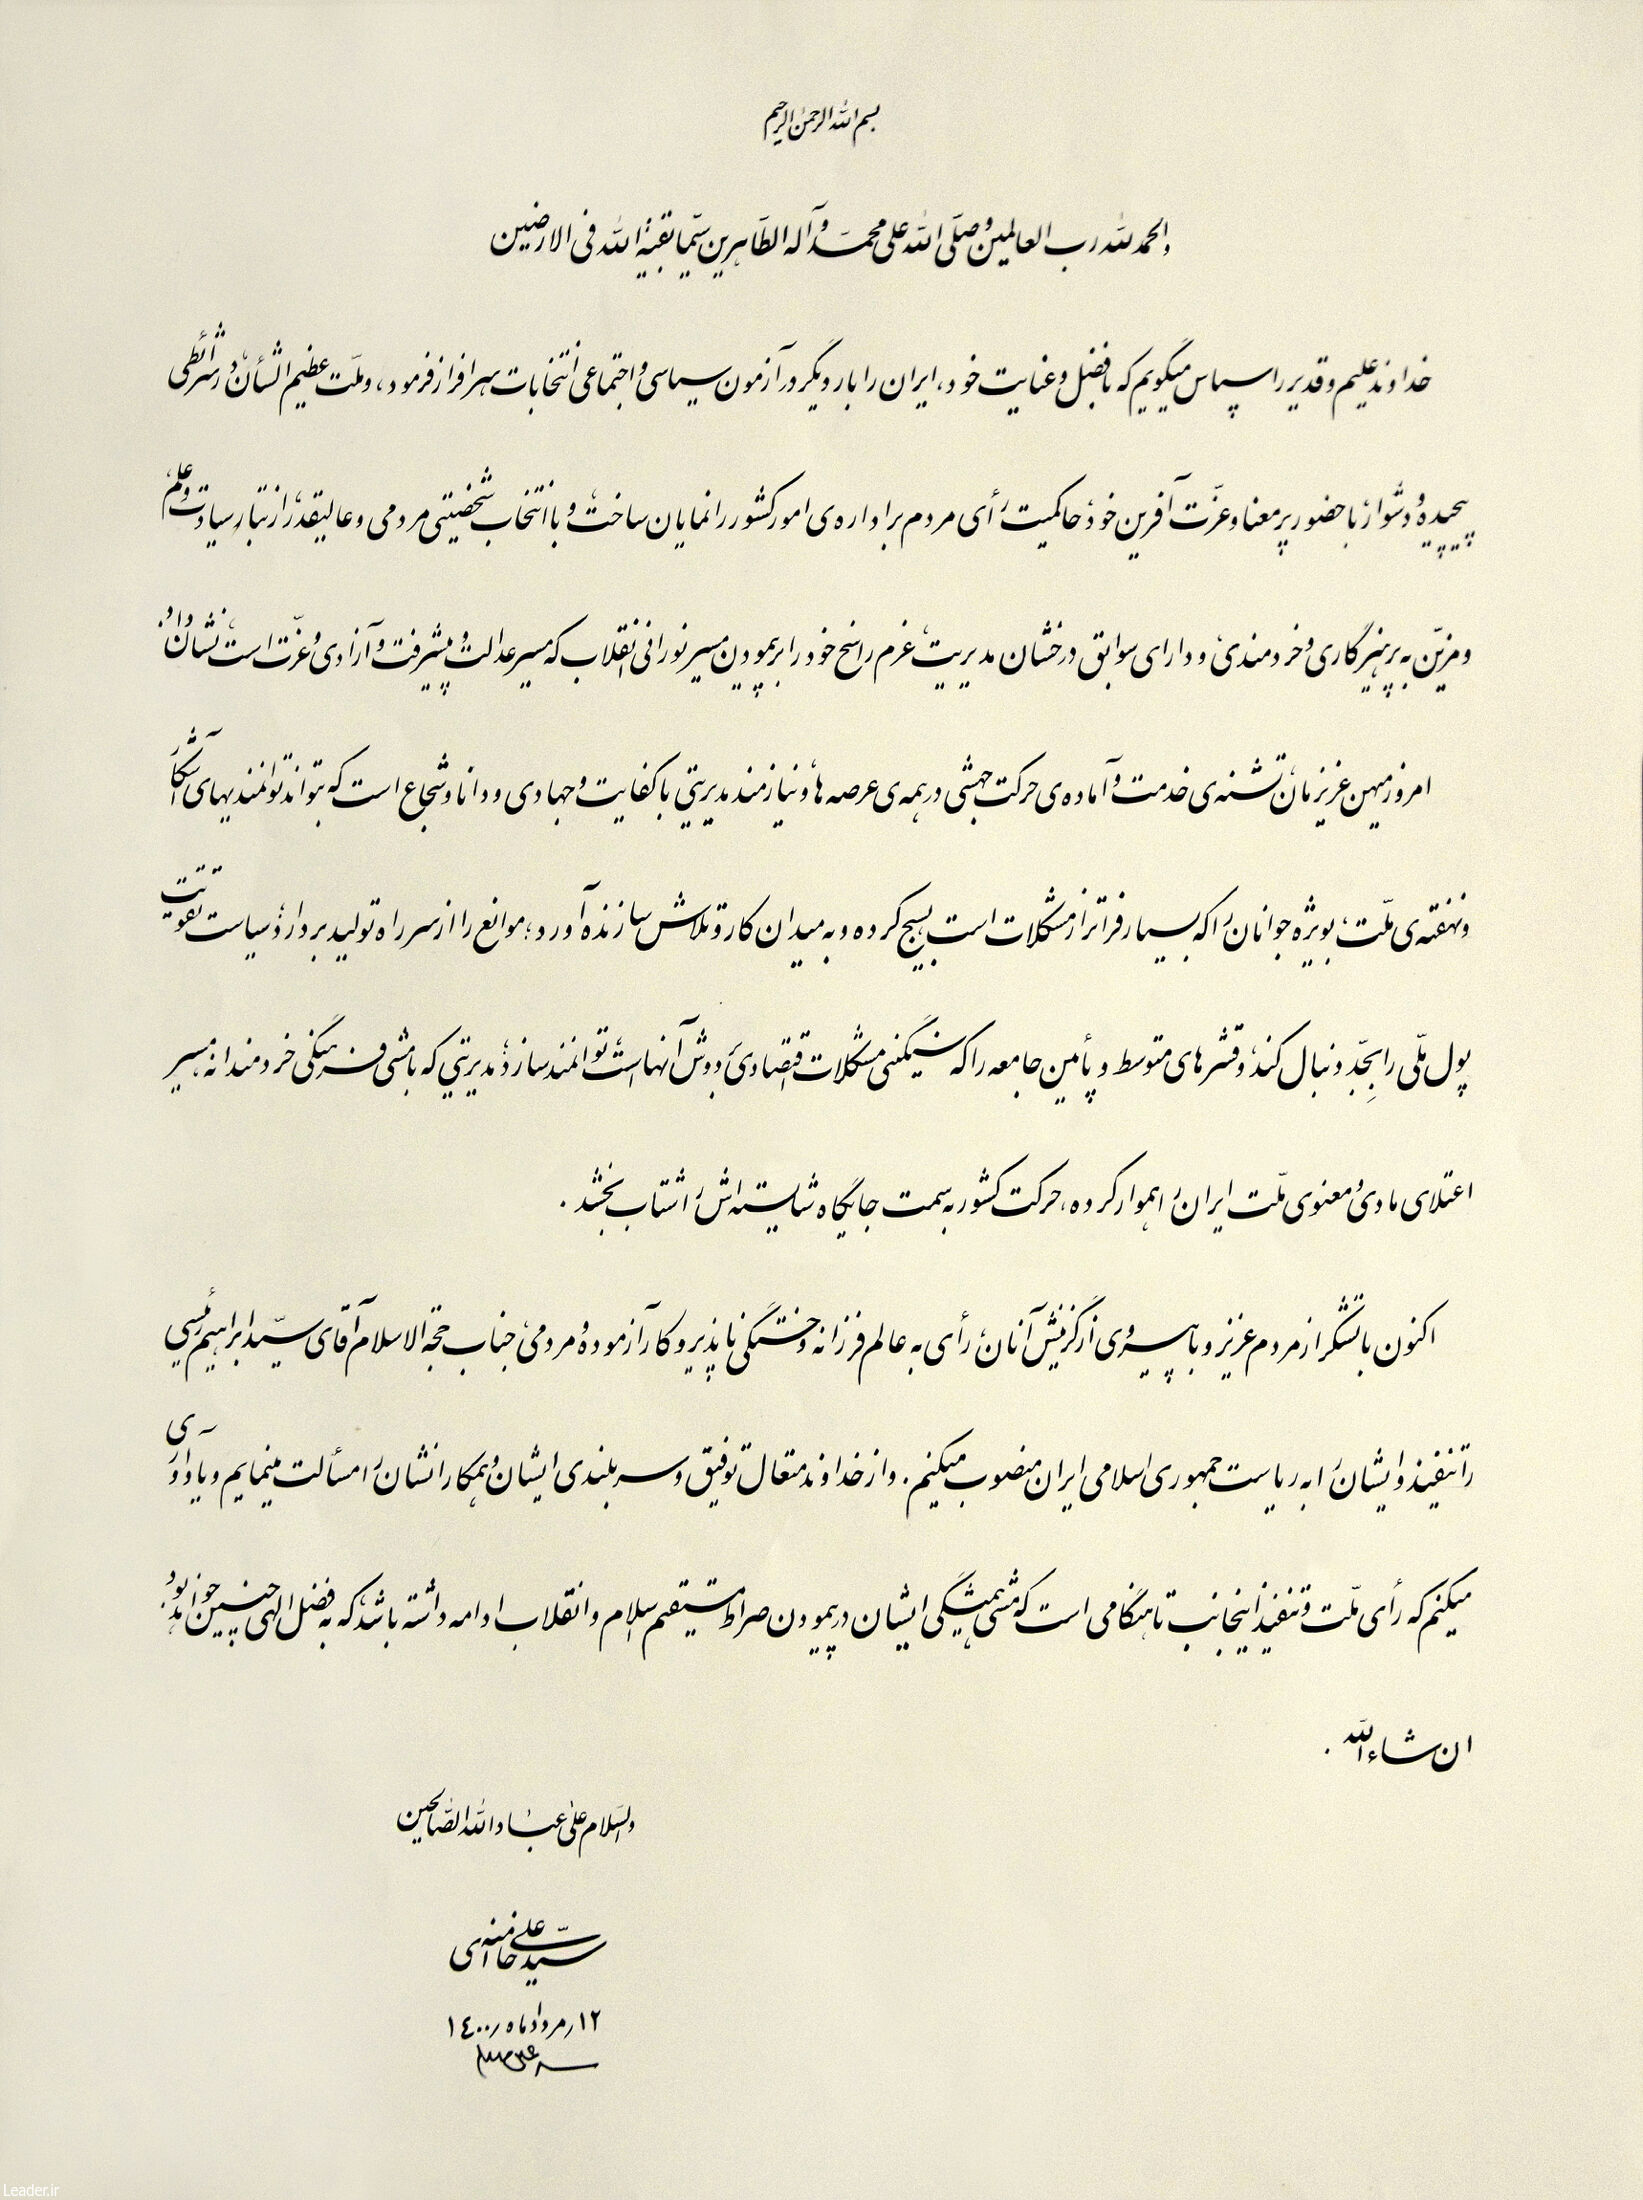 بسم الله الرحمن الرحیم
والحمد لله رب العالمین و صلّی الله علی محمد و آله الطّاهرین سیّما بقیة الله فی الارضین
خداوند علیم و قدیر را سپاس میگویم که با فضل و عنایت خود، ایران را بار دیگر در آزمون سیاسی و اجتماعی انتخابات سرافراز فرمود، و ملّت عظیم الشأن، در شرائطی
پیچیده و دشوار با حضور پرمعنا و عزّت آفرین خود، حاکمیت رأی مردم بر اداره‌ی امور کشور را نمایان ساخت، و با انتخاب شخصیتی مردمی و عالیقدر از تبار سیادت و علم،
و مزیّن به پرهیزگاری و خردمندی، و دارای سوابق درخشان مدیریت، عزم راسخ خود را بر پیمودن مسیر نورانی انقلاب که مسیر عدالت و پیشرفت و آزادی و عزّت است، نشان داد.
امروز میهن عزیزمان، تشنه‌ی خدمت و آماده‌ی حرکت جهشی در همه‌ی عرصه ها، و نیازمند مدیریتی با کفایت و جهادی و دانا و شجاع است که بتواند توانمندیهای آشکار
و نهفته‌ی ملّت، بویژه جوانان را که بسیار فراتر از مشکلات است، بسیج کرده و به میدان کار و تلاش سازنده آورد؛ موانع را از سر راه تولید بردارد؛ سیاست تقویت
پول ملّی را بجِدّ دنبال کند؛ و قشرهای متوسط و پایین جامعه را که سنگینی مشکلات اقتصادی بر دوش آنها است، توانمند سازد؛ مدیریتی که با مشی فرهنگی خردمندانه، مسیر
اعتلای مادی و معنوی ملّت ایران را هموار کرده، حرکت کشور به سمت جایگاه شایسته اش را شتاب بخشد.
اکنون با تشکر از مردم عزیز و با پیروی از گزینش آنان، رأی به عالم فرزانه و خستگی ناپذیر و کارآزموده و مردمی، جناب حجة الاسلام آقای سیّد ابراهیم رئیسی
را تنفیذ و ایشان را به ریاست جمهوری اسلامی ایران منصوب میکنم. و از خداوند متعال توفیق و سربلندی ایشان و همکارانشان را مسألت مینمایم و یادآوری
میکنم که رأی ملّت و تنفیذ اینجانب تا هنگامی است که مشی همیشگی ایشان در پیمودن صراط مستقیم اسلام و انقلاب ادامه داشته باشد، که به فضل الهی چنین خواهد بود،
ان شاءالله.
والسّلام علی عباد الله الصّالحین
سیّد علی خامنه ای
۱۲/مردادماه/۱٤۰۰
Leader.ir